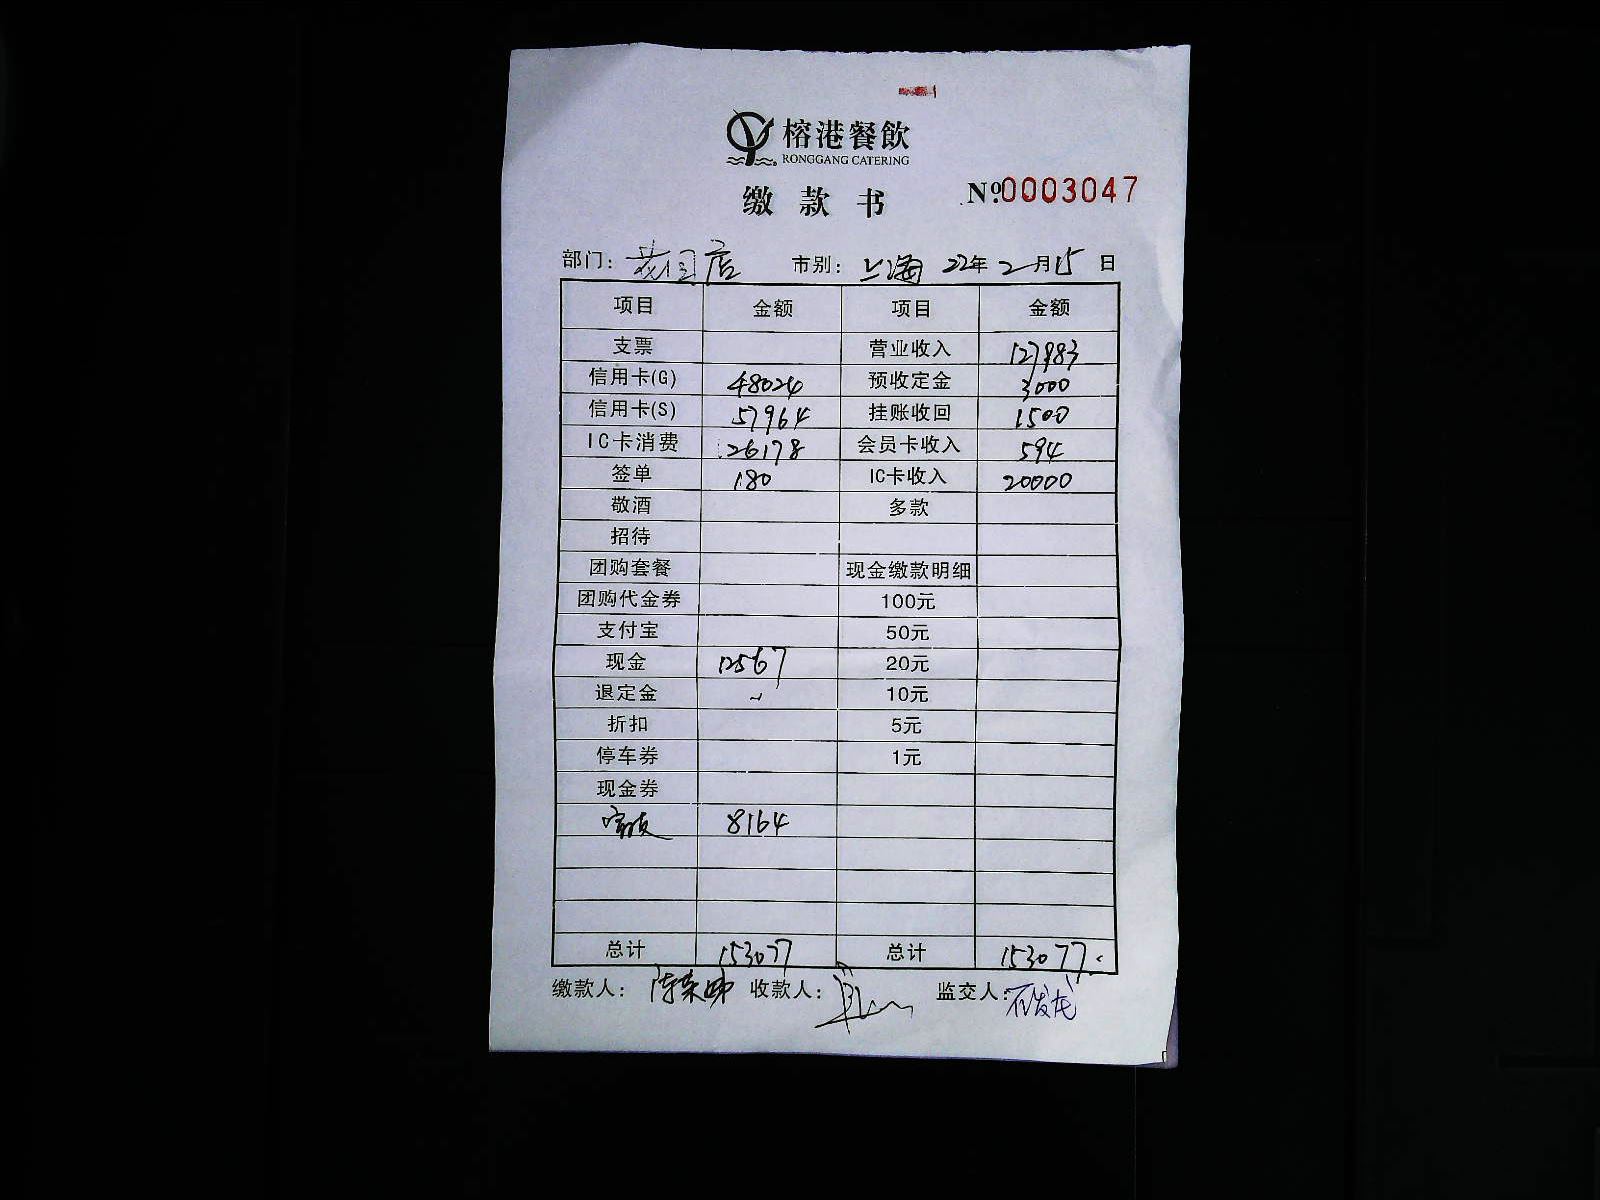 榕港餐飲
RONGGANG CATERING
缴款书 №0003047
部门： 店 市别：上海 22年2月15日
项目 金额 项目 金额
支票 营业收入 127983
信用卡(G) 48024 预收定金 3000
信用卡(S) 57964 挂账收回 1500
IC卡消费 26178 会员卡收入 594
签单 180 IC卡收入 20000
敬酒 多款
招待
团购套餐 现金缴款明细
团购代金券 100元
支付宝 50元
现金 12567 20元
退定金 ~ 10元
折扣 5元
停车券 1元
现金券
8164
总计 153077 总计 153077
缴款人： 收款人： 监交人：